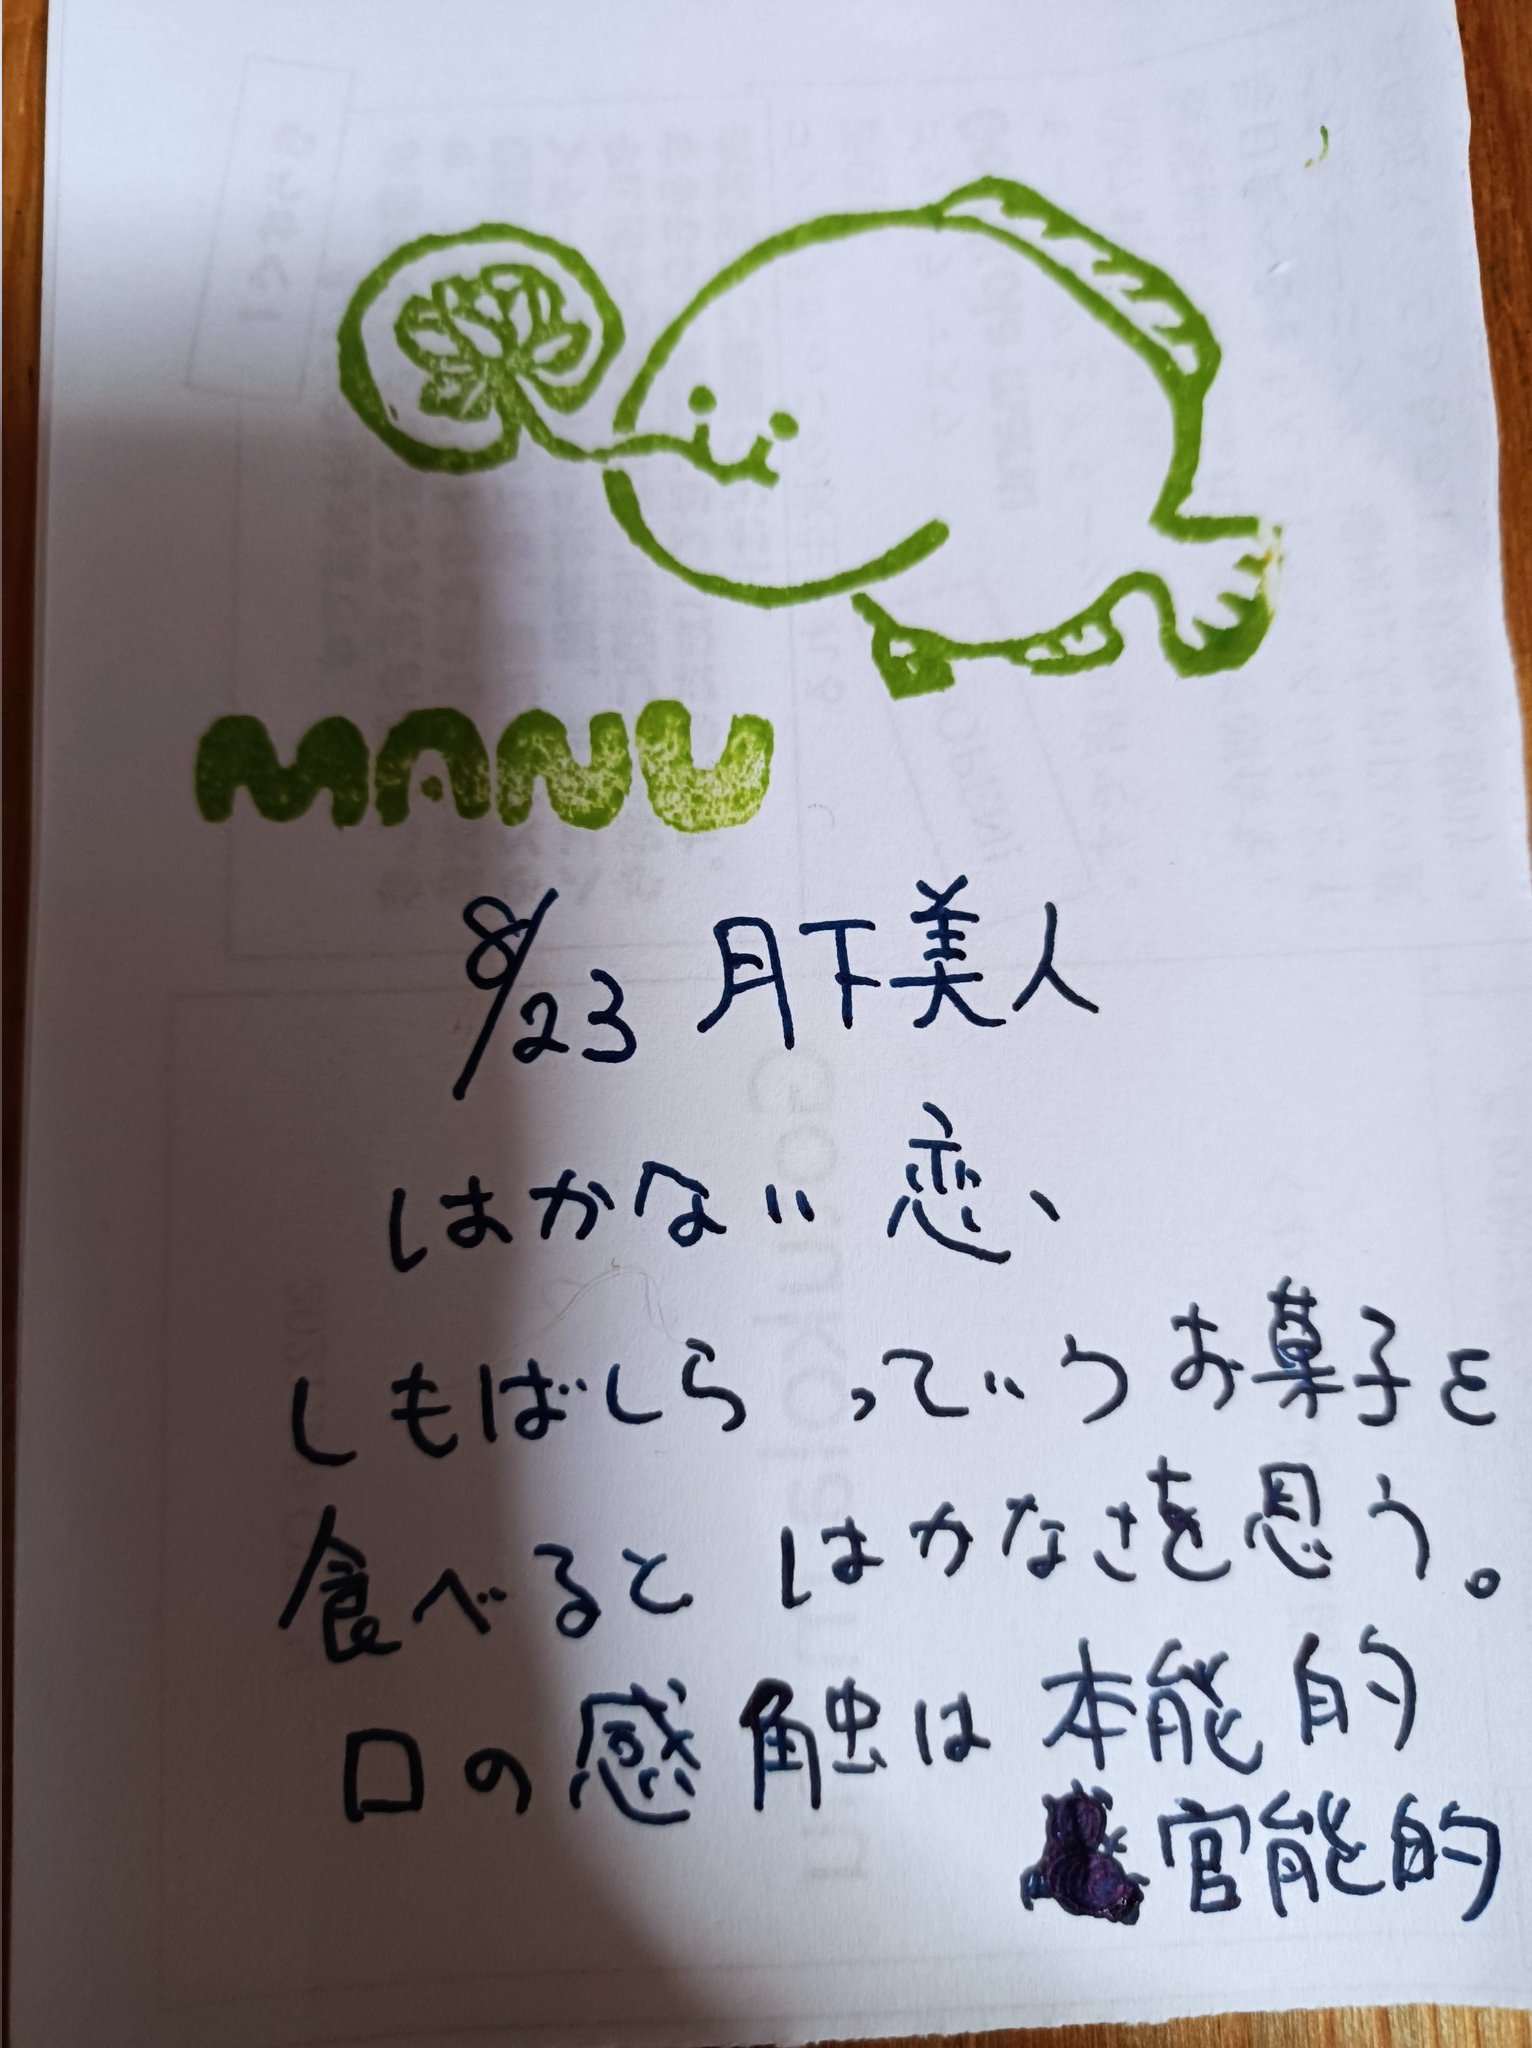 MANU
8/23 月下美人
はかない恋、
しもばしらっていうお菓子を
食べると はかなさを思う。
口の感触は 本能的
官能的